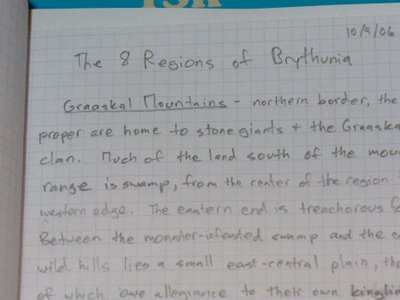 TSR
10/9/06
The 8 Regions of Brythunia
Graaskal Mountains - northern border, the
proper are home to stone giants + the Graaska
clan. Much of the land south of the mou
range is swamp, from the center of the region
western edge. The eastern end is treacherous fo
Between the monster-infested swamp and the e
wild hills lies a small east-central plain, the
of which owe allegiance to their own kinglin